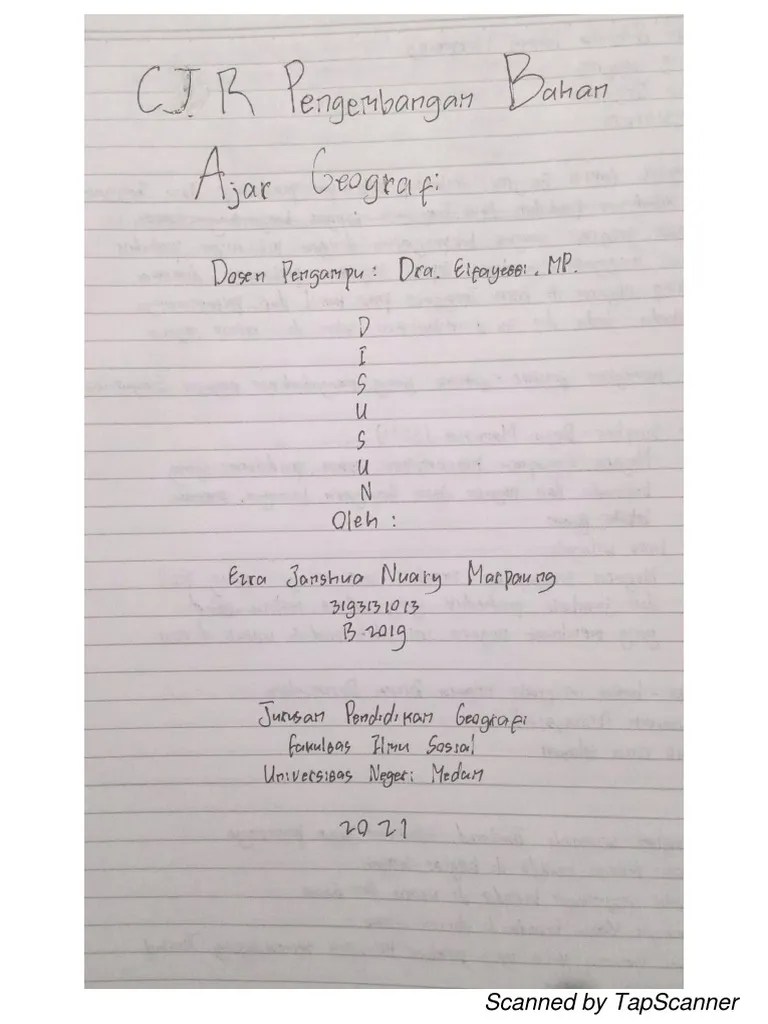 CJR Pengembangan Bahan
Ajar Geografi
Dosen Pengampu : Dra. Elfayetti. MP.
D
I
S
U
S
U
N
Oleh :
Ezra Janshua Nuary Marpaung
3193131013
B-2019
Jurusan Pendidikan Geografi
Fakultas Ilmu Sosial
Universitas Negeri Medan
2021
Scanned by TapScanner